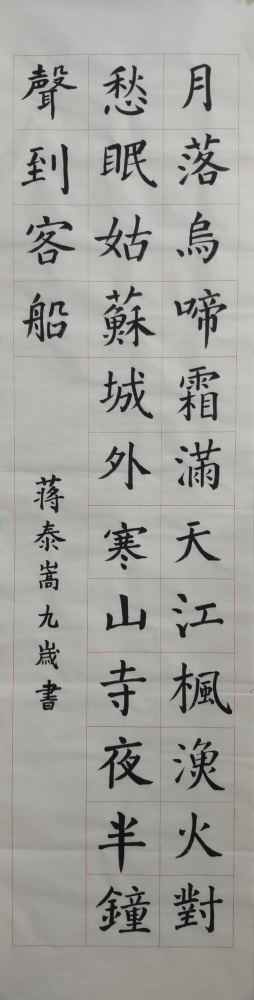 月落烏啼霜滿天江楓漁火對
愁眠姑蘇城外寒山寺夜半鐘
聲到客船
蒋泰嵩九歲書